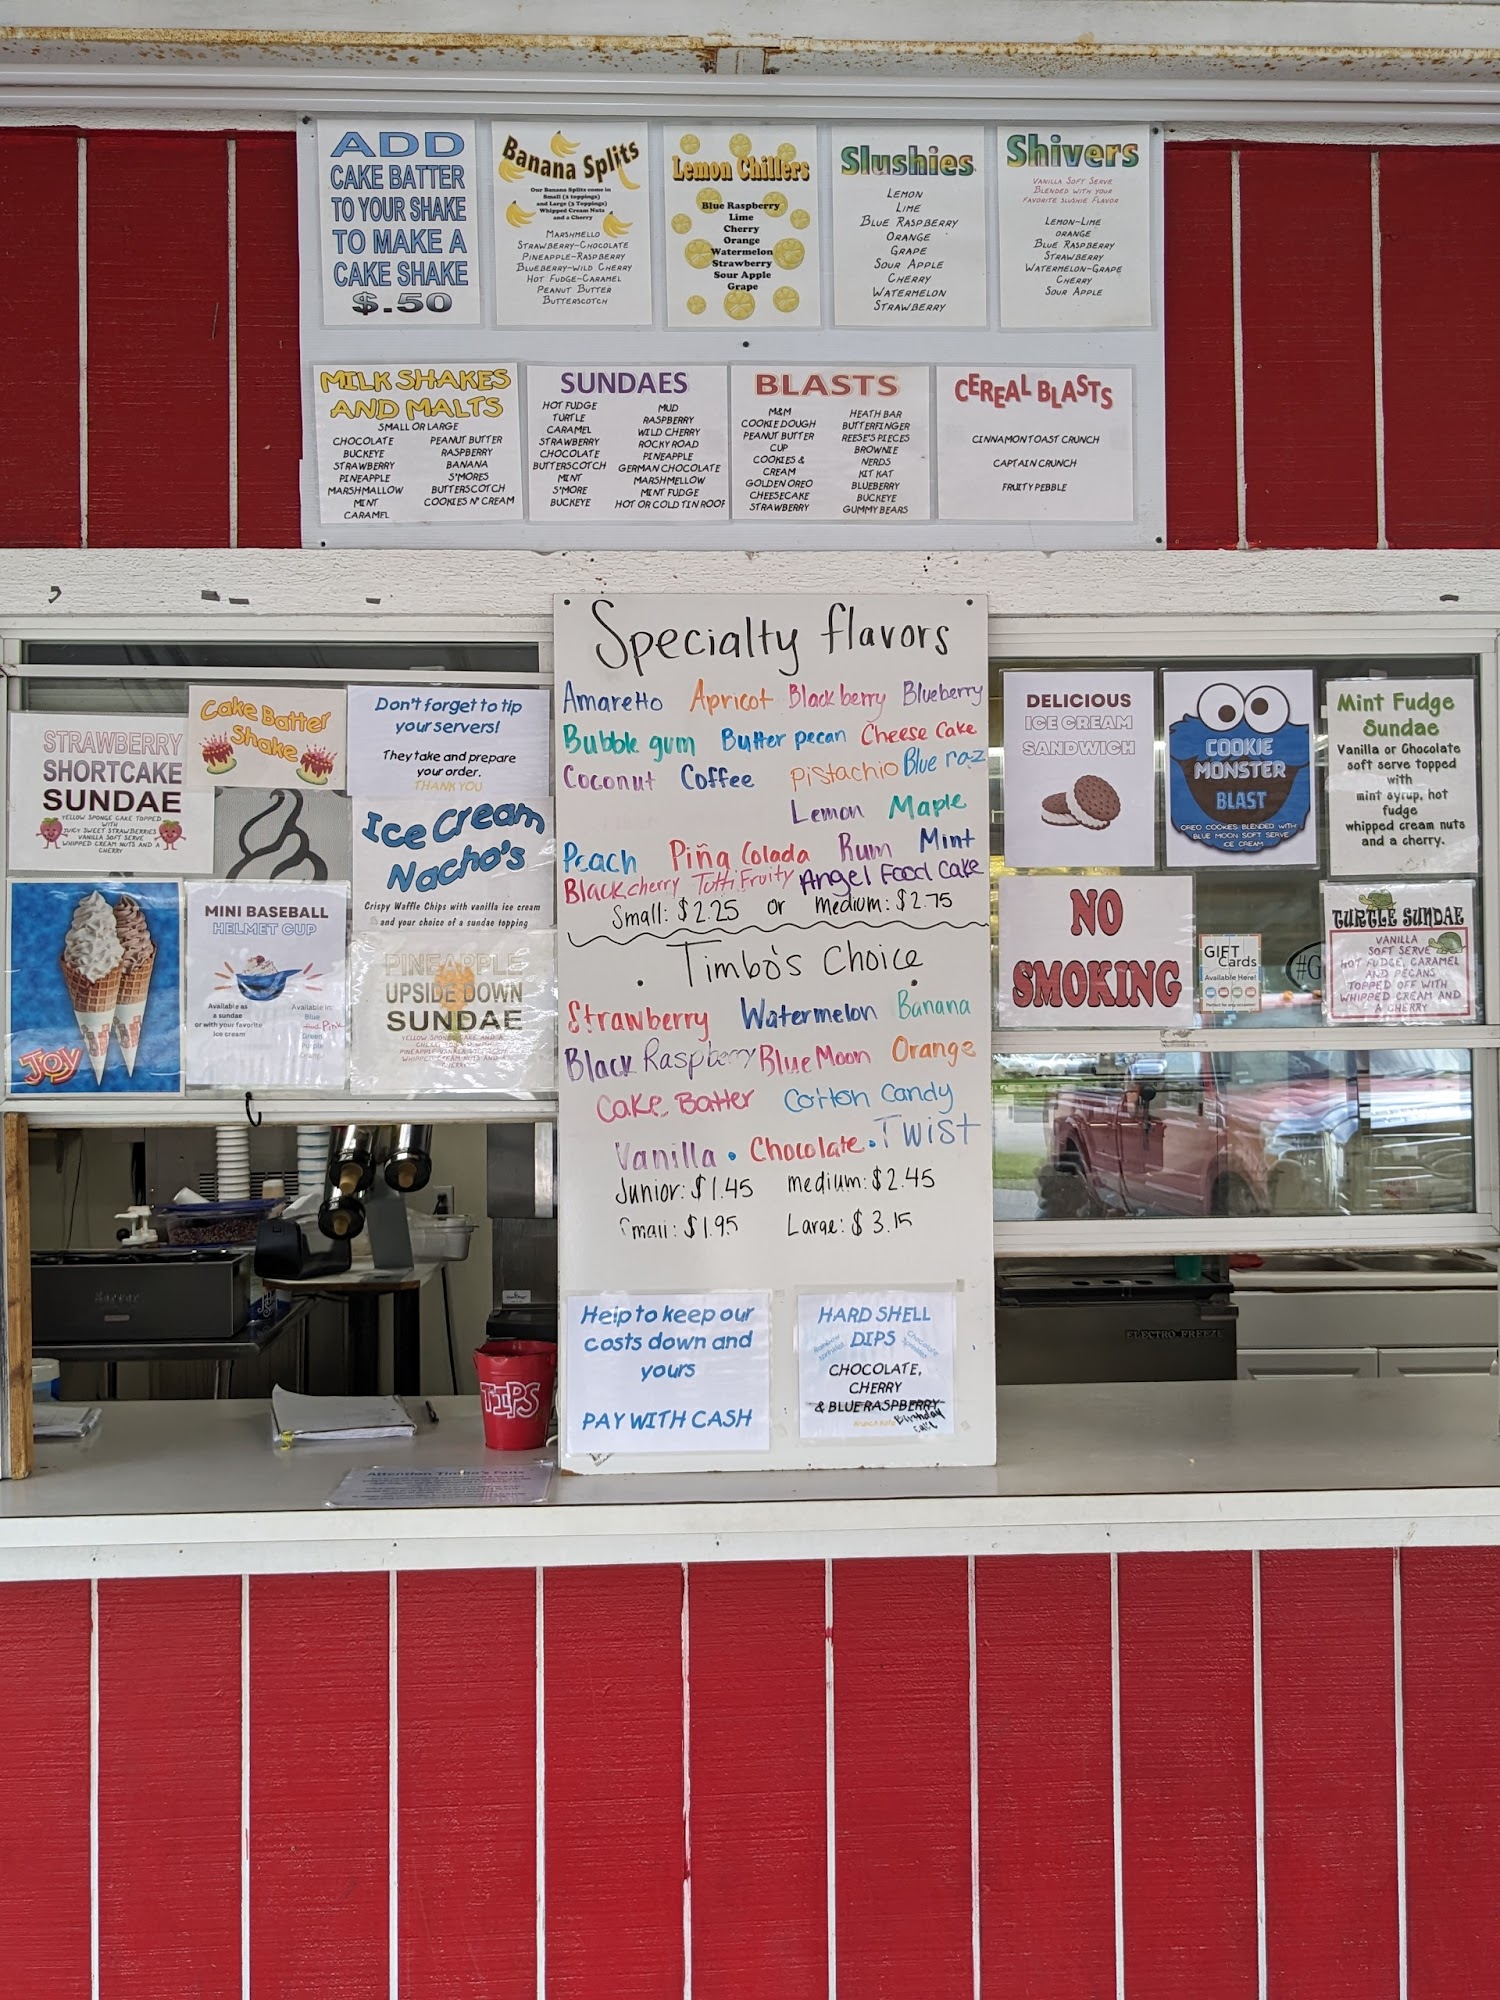 ADD
CAKE BATTER
TO YOUR SHAKE
TO MAKE A
CAKE SHAKE
$.50
Banana Splits
Our Banana Splits come in
Small (2 toppings)
and Large (3 Toppings)
Whipped Cream Nuts
and a Cherry
MARSHMELLO
STRAWBERRY-CHOCOLATE
PINEAPPLE-RASPBERRY
BLUEBERRY-WILD CHERRY
HOT FUDGE-CARAMEL
PEANUT BUTTER
BUTTERSCOTCH
Lemon Chillers
Blue Raspberry
Lime
Cherry
Orange
Watermelon
Strawberry
Sour Apple
Grape
Slushies
LEMON
LIME
BLUE RASPBERRY
ORANGE
GRAPE
SOUR APPLE
CHERRY
WATERMELON
STRAWBERRY
Shivers
VANILLA SOFT SERVE
BLENDED WITH YOUR
FAVORITE SLUSHIE FLAVOR
LEMON-LIME
ORANGE
BLUE RASPBERRY
STRAWBERRY
WATERMELON-GRAPE
CHERRY
SOUR APPLE
MILK SHAKES
AND MALTS
SMALL OR LARGE
CHOCOLATE
BUCKEYE
STRAWBERRY
PINEAPPLE
MARSHMALLOW
MINT
CARAMEL
PEANUT BUTTER
RASPBERRY
BANANA
S'MORES
BUTTERSCOTCH
COOKIES N' CREAM
SUNDAES
HOT FUDGE
TURTLE
CARAMEL
STRAWBERRY
CHOCOLATE
BUTTERSCOTCH
MINT
S'MORE
BUCKEYE
MUD
RASPBERRY
WILD CHERRY
ROCKY ROAD
PINEAPPLE
GERMAN CHOCOLATE
MARSHMELLOW
MINT FUDGE
HOT OR COLD TIN ROOF
BLASTS
M&M
COOKIE DOUGH
PEANUT BUTTER
CUP
COOKIES &
CREAM
GOLDEN OREO
CHEESECAKE
STRAWBERRY
HEATH BAR
BUTTERFINGER
REESE'S PIECES
BROWNIE
NERDS
KIT KAT
BLUEBERRY
BUCKEYE
GUMMY BEARS
CEREAL BLASTS
CINNAMON TOAST CRUNCH
CAPTAIN CRUNCH
FRUITY PEBBLE
STRAWBERRY
SHORTCAKE
SUNDAE
YELLOW SPONGE CAKE TOPPED
WITH
JUICY SWEET STRAWBERRIES
VANILLA SOFT SERVE
WHIPPED CREAM NUTS AND A
CHERRY
Cake Batter
Shake
Don't forget to tip
your servers!
They take and prepare
your order.
THANK YOU
Ice Cream
Nacho's
Crispy Waffle Chips with vanilla ice cream
and your choice of a sundae topping
Joy
MINI BASEBALL
HELMET CUP
Available as
a sundae
or with your favorite
ice cream
Available in:
Blue
Pink
Green
Purple
Orange
PINEAPPLE
UPSIDE DOWN
SUNDAE
Specialty flavors
Amaretto Apricot Blackberry Blueberry
Bubble gum Butter pecan Cheese Cake
Coconut Coffee Pistachio Blue raz
Lemon Maple
Peach Piña Colada Rum Mint
Black cherry Tutti Fruity Angel Food Cake
Small: $2.25 or medium: $2.75
Timbo's Choice
Strawberry Watermelon Banana
Black Raspberry Blue Moon Orange
Cake Batter Cotton Candy
Vanilla • Chocolate • Twist
Junior: $1.45 medium: $2.45
Small: $1.95 Large: $3.15
Help to keep our
costs down and
yours
PAY WITH CASH
HARD SHELL
DIPS
CHOCOLATE,
CHERRY
& BLUE RASPBERRY
Birthday
Cake
DELICIOUS
ICE CREAM
SANDWICH
COOKIE
MONSTER
BLAST
OREO COOKIES BLENDED WITH
BLUE MOON SOFT SERVE
ICE CREAM
Mint Fudge
Sundae
Vanilla or Chocolate
soft serve topped
with
mint syrup, hot
fudge
whipped cream nuts
and a cherry.
NO
SMOKING
GIFT
Cards
Available Here!
#G
TURTLE SUNDAE
VANILLA
SOFT SERVE
HOT FUDGE, CARAMEL
AND PECANS
TOPPED OFF WITH
WHIPPED CREAM AND
A CHERRY
TIPS
ELECTRO FREEZE
Attention Timbo's Fans